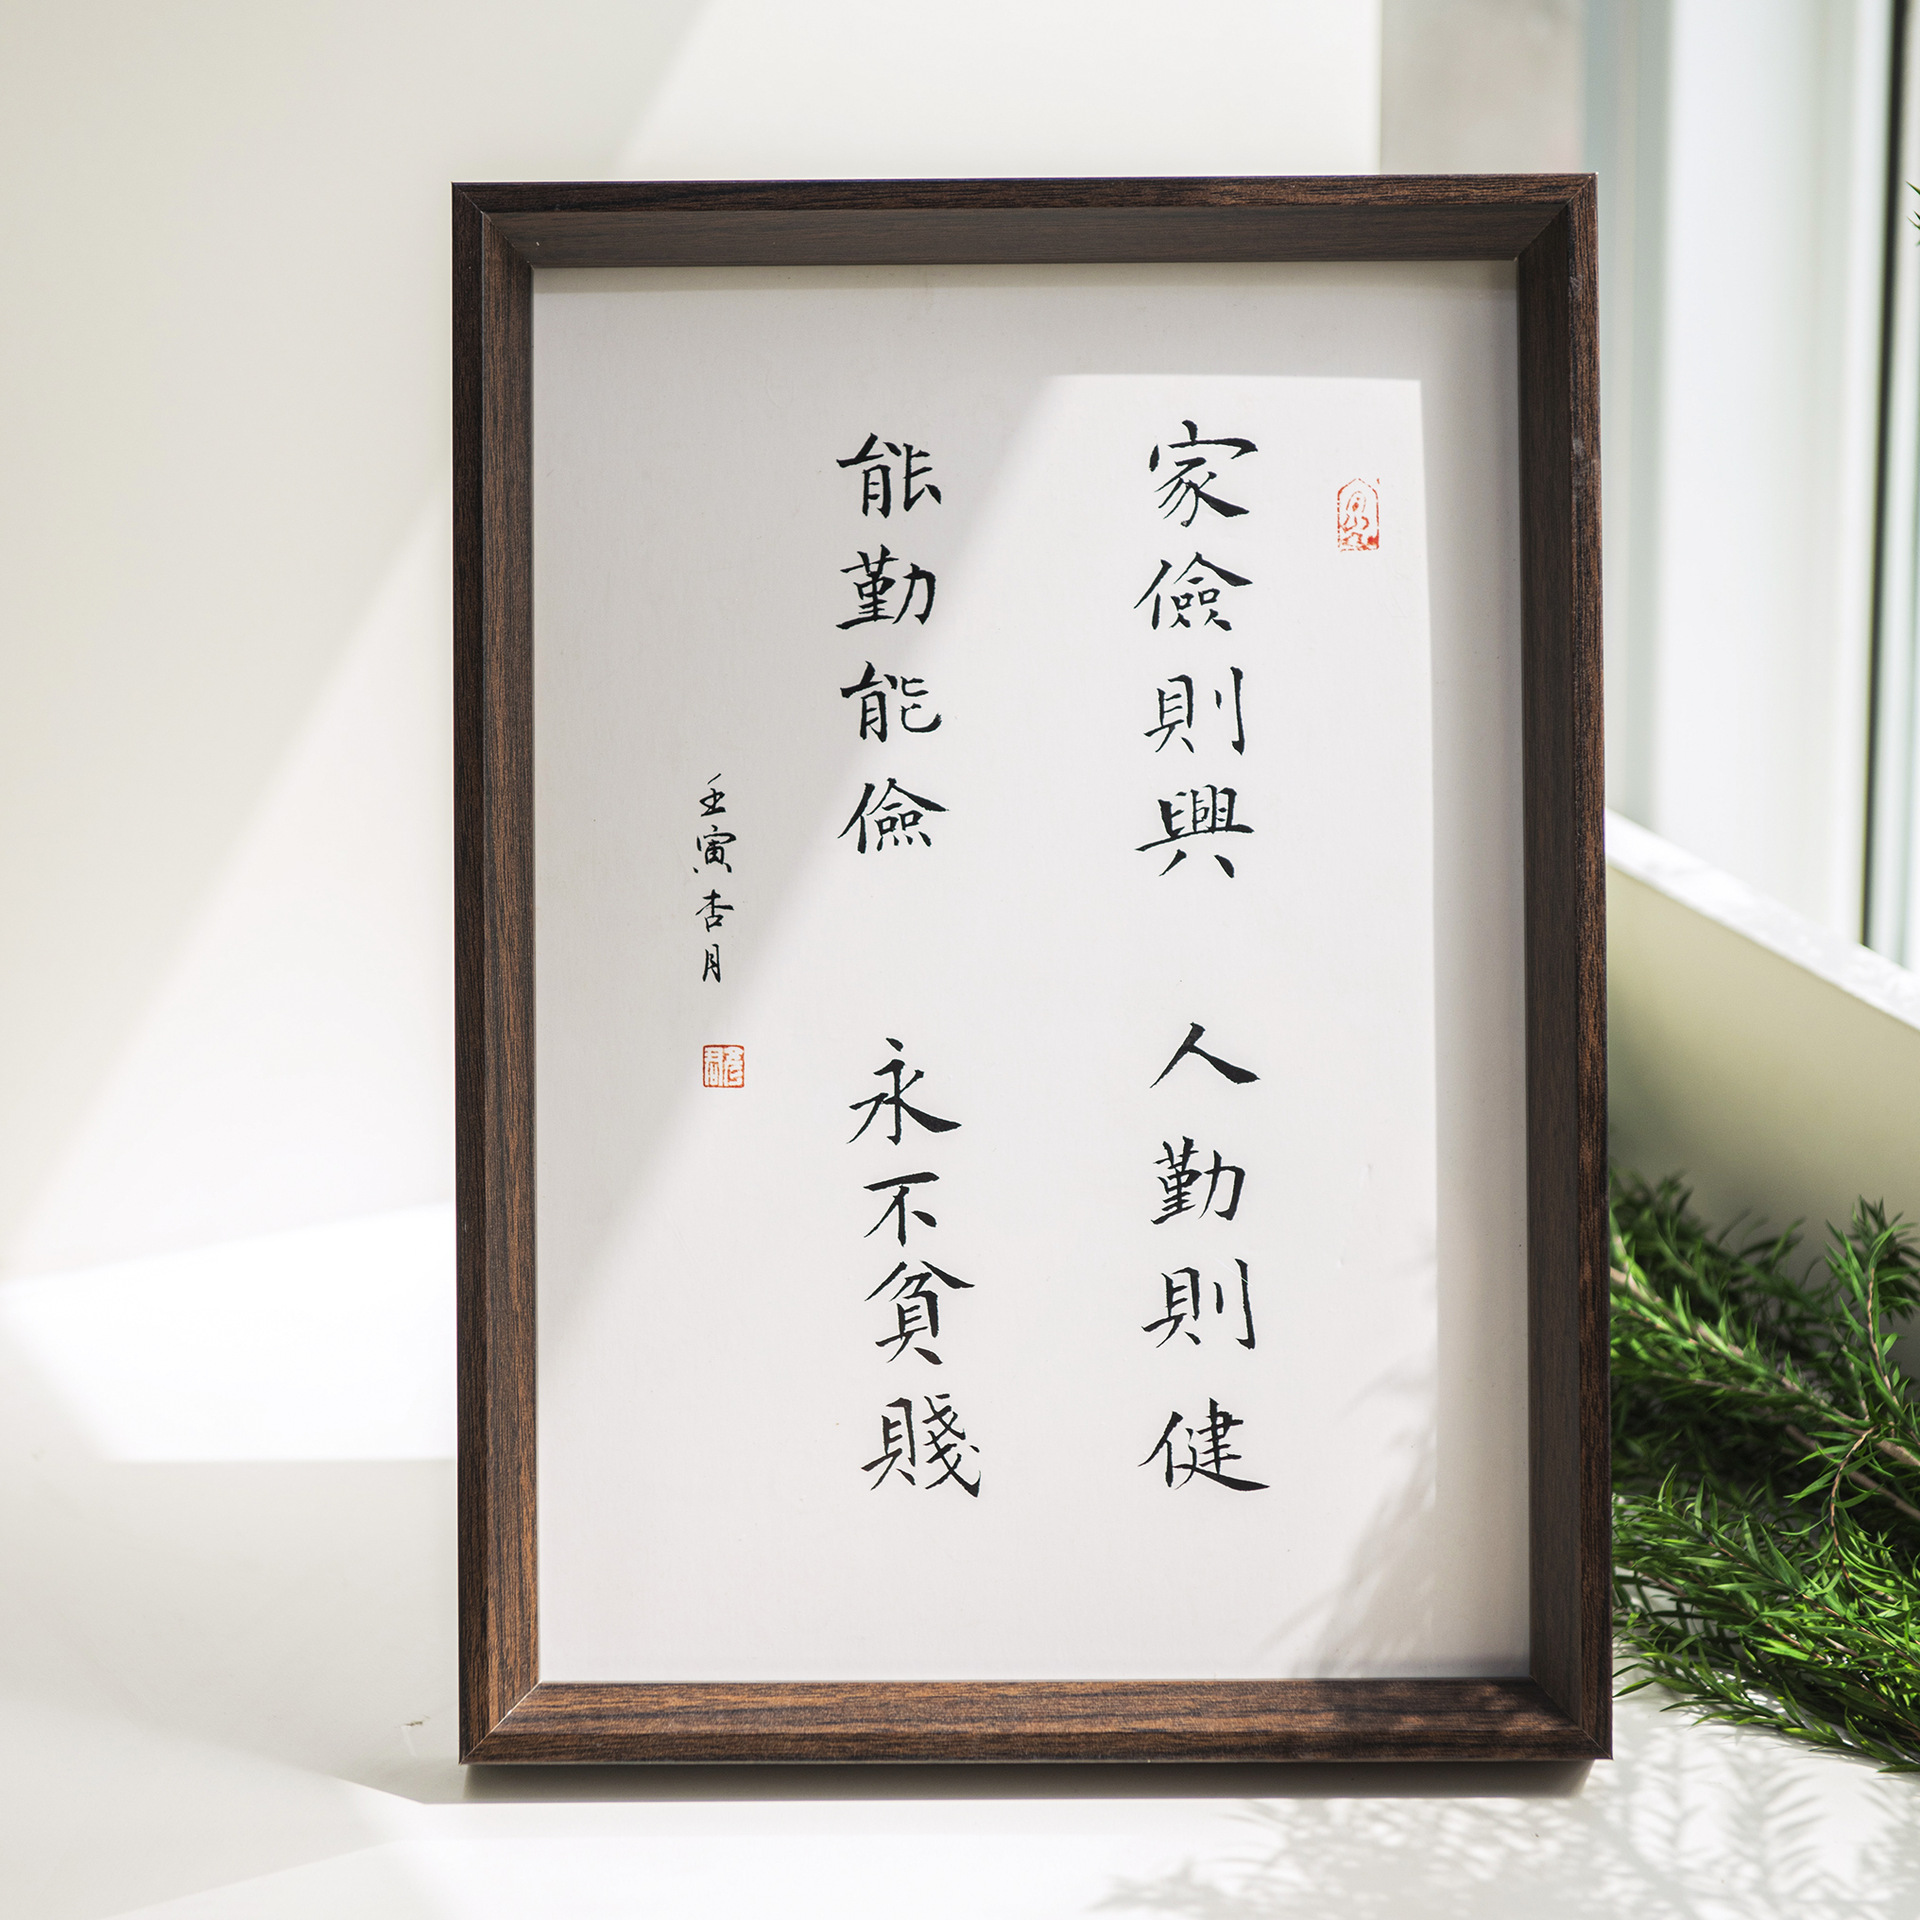 家儉則興 人勤則健
能勤能儉 永不貧賤
壬寅杏月